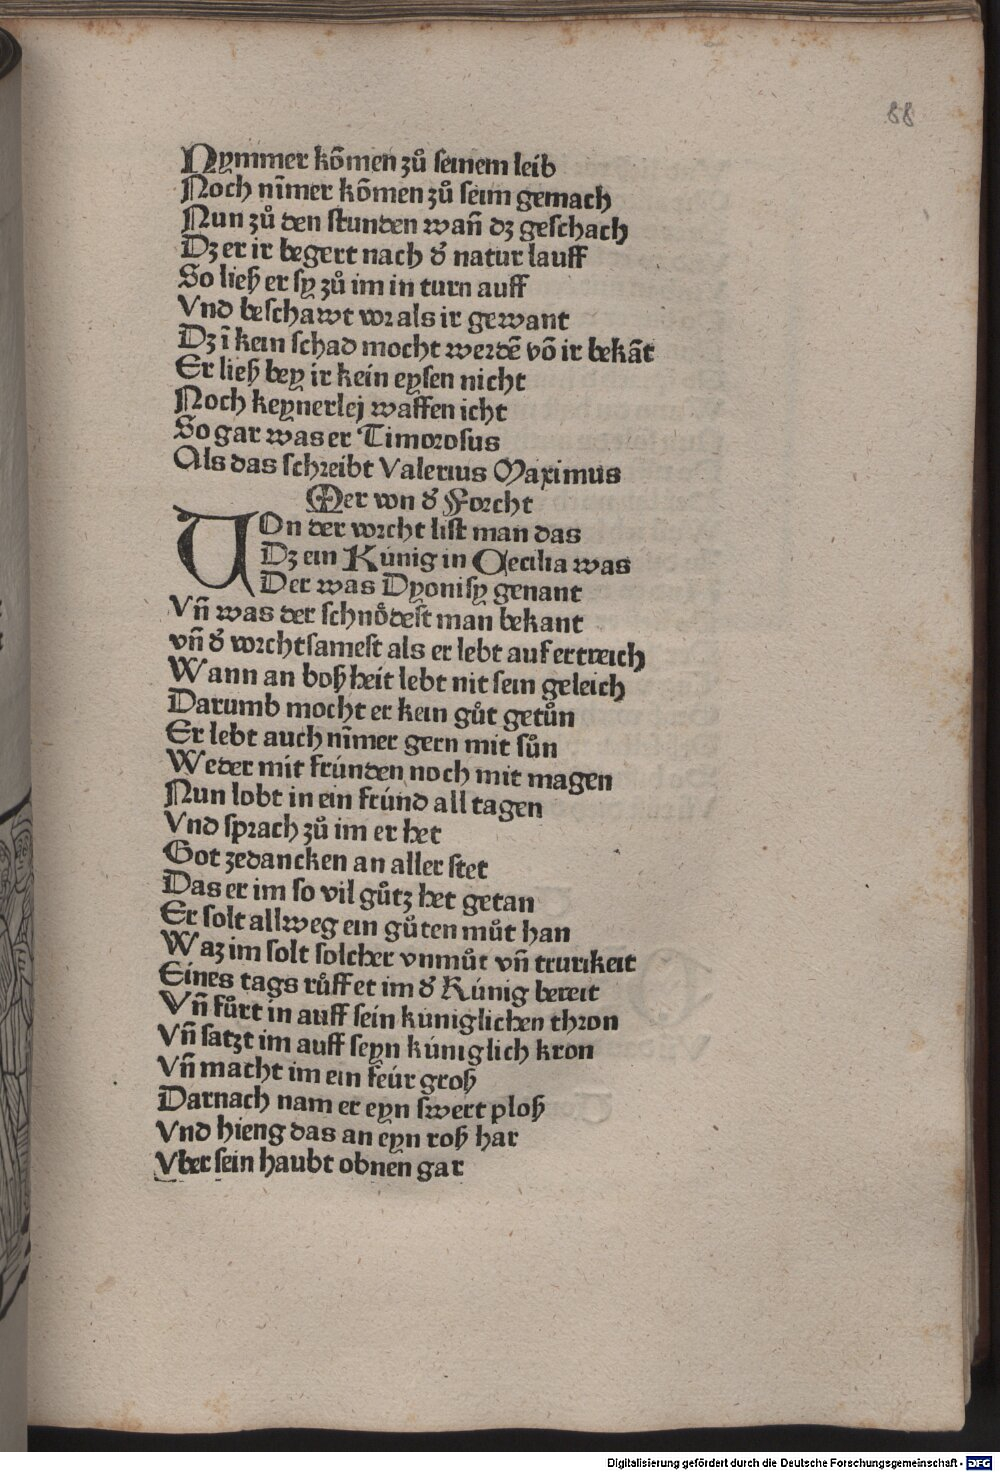 88
Nymmer kõmen zů seinem leib
Noch nĩmer kõmen zů seim gemach
Nun zů den stunden wañ dz geschach
Dz er ir begert nach ð natur lauff
So ließ er sy zů im in turn auff
Vnd beschawt vor als ir gewant
Dz ĩ kein schad mocht werdẽ võ ir bekãt
Er ließ bey ir kein eysen nicht
Noch keynerlej waffen icht
So gar was er Timorosus
Als das schreibt Valerius Maximus
Mer von ð Forcht
VOn der vorcht list man das
Dz ein Kúnig in Cecilia was
Der was Dyonisy genant
Vñ was der schnoͤdest man bekant
vñ ð vorchtsamest als er lebt auf ertreich
Wann an boßheit lebt nit sein geleich
Darumb mocht er kein gůt getůn
Er lebt auch nĩmer gern mit sůn
Weder mit frúnden noch mit magen
Nun lobt in ein frúnd all tagen
Vnd sprach zů im er het
Got zedancken an aller stet
Das er im so vil gůtz het getan
Er solt allweg ein gůten můt han
Waz im solt solcher vnmůt vñ trurikeit
Eines tags růffet im ð Kúnig bereit
Vñ fůrt in auff sein kúniglichen thron
Vñ satzt im auff seyn kúniglich kron
Vñ macht im ein feúr groß
Darnach nam er eyn swert ploß
Vnd hieng das an eyn roß har
Vber sein haubt obnen gar
Digitalisierung gefördert durch die Deutsche Forschungsgemeinschaft - DFG